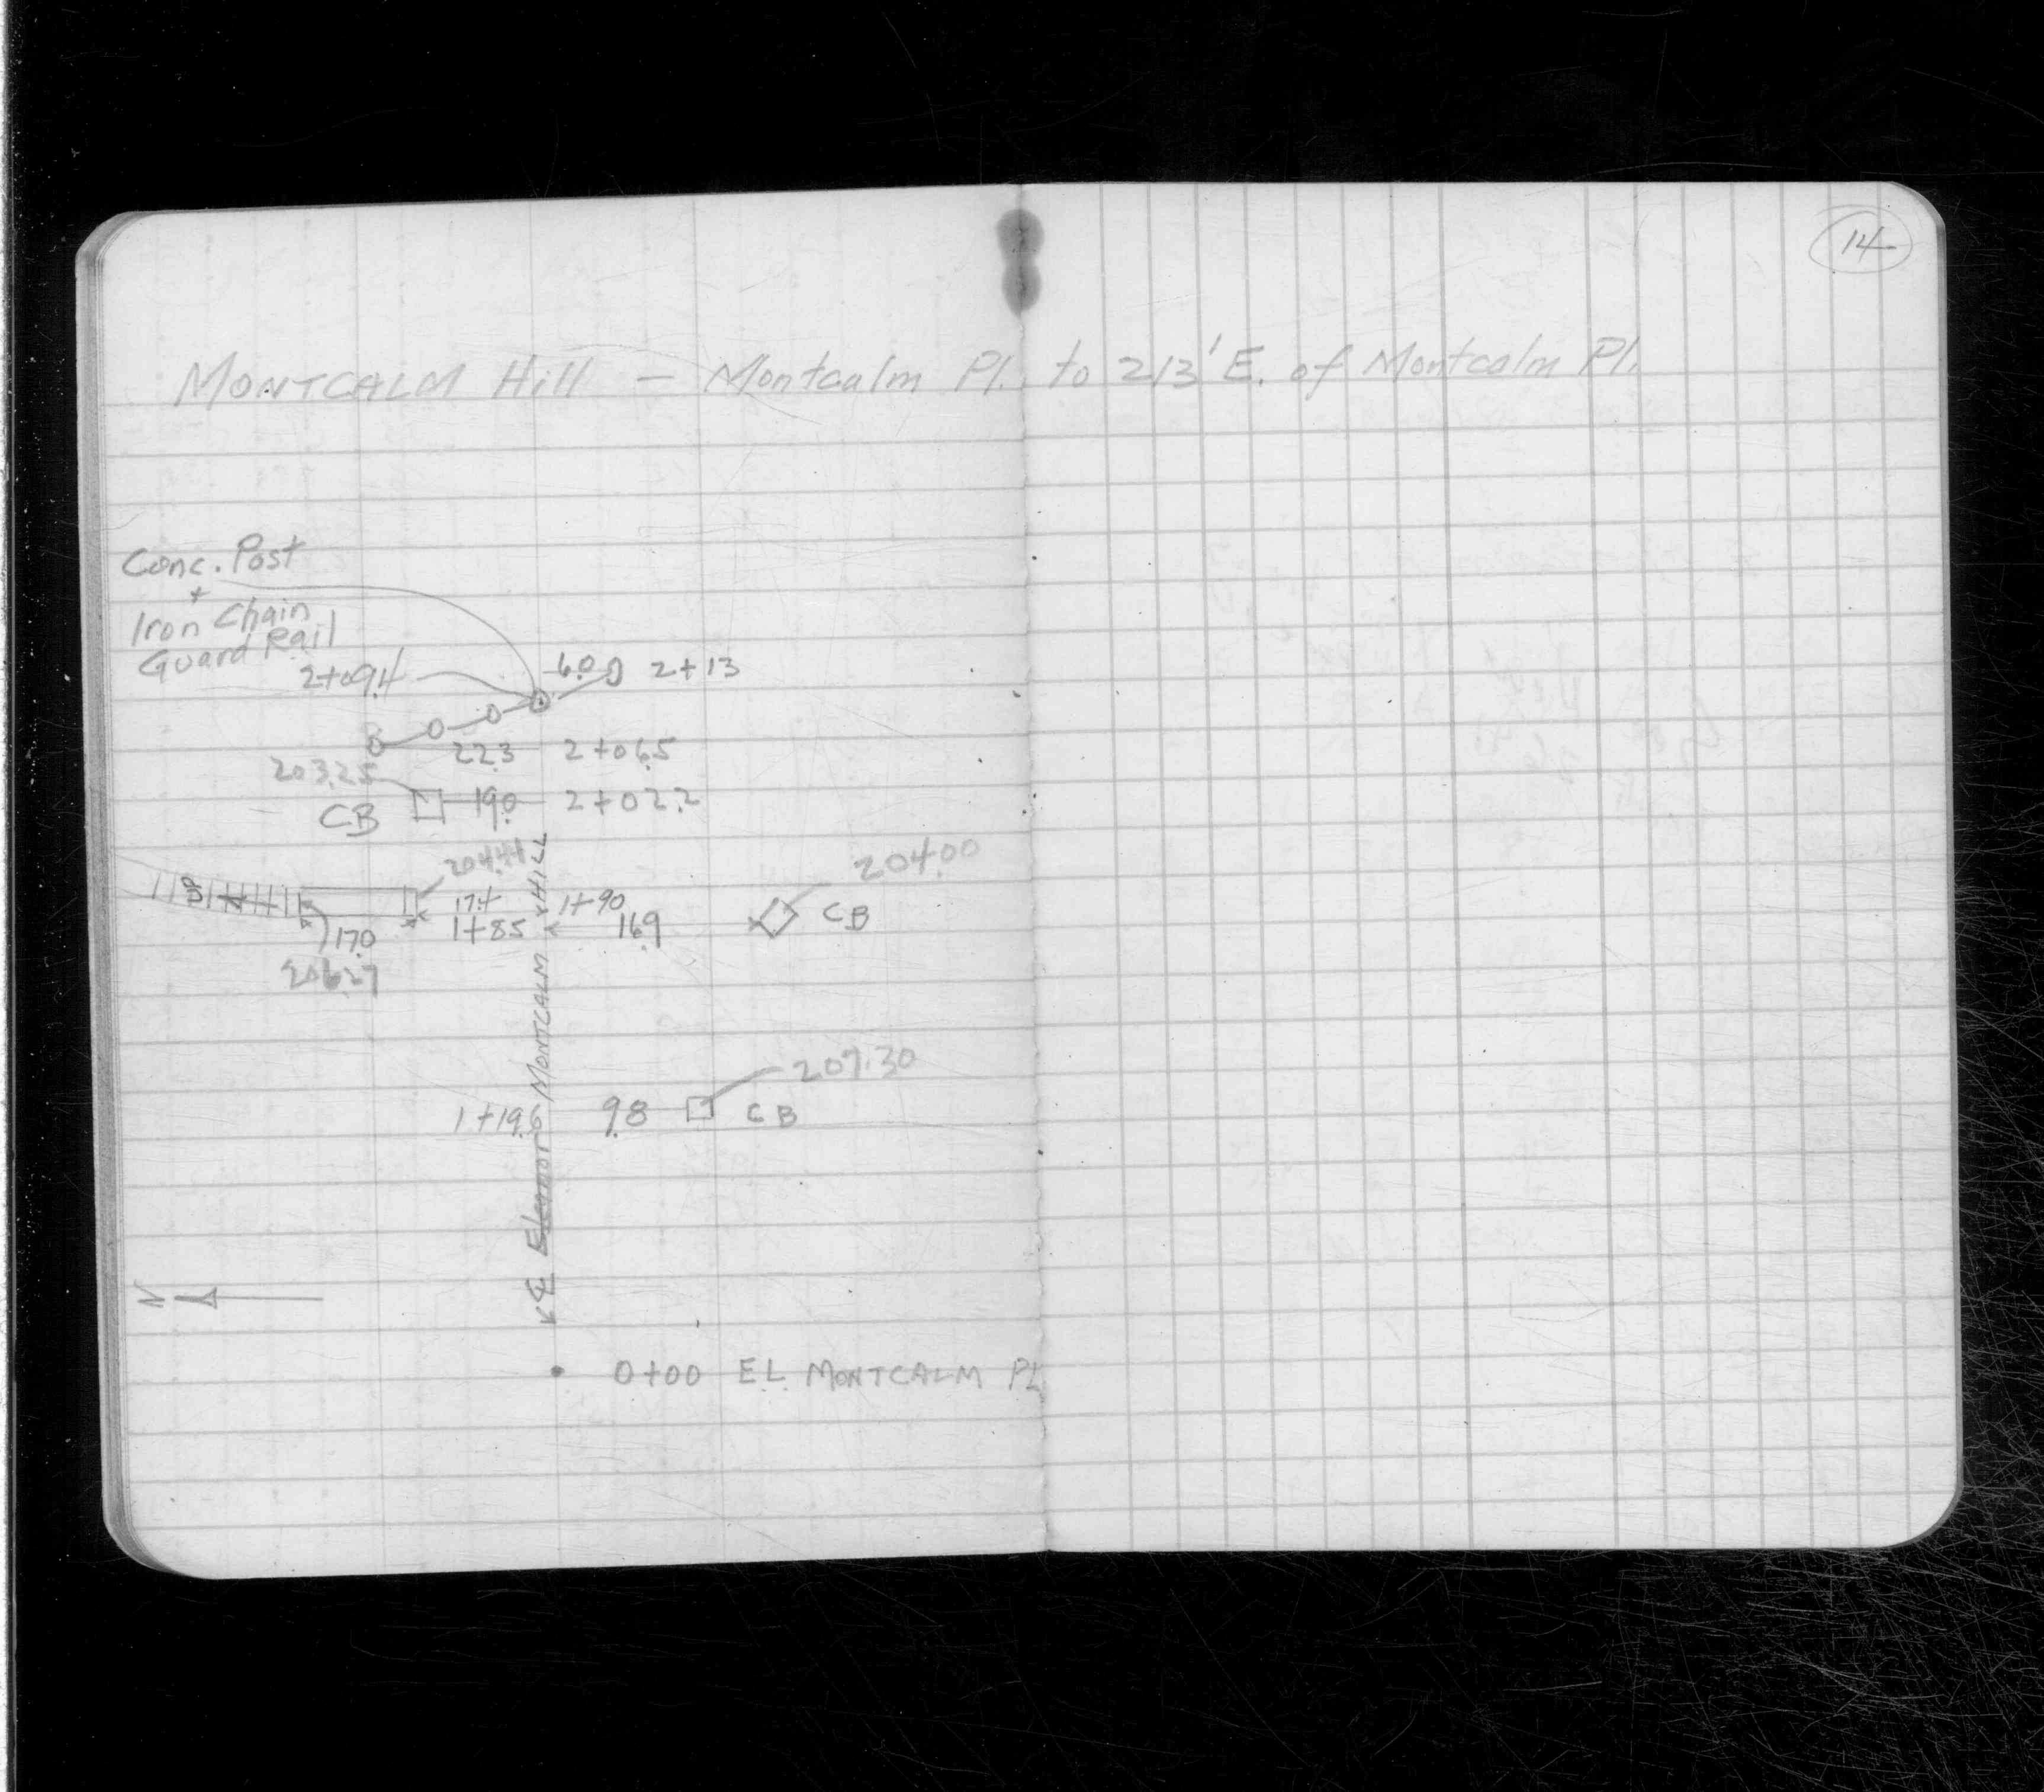 14
MONTCALM Hill — Montcalm Pl. to 213' E. of Montcalm Pl.
Conc. Post
+
Iron Chain
Guard Rail
2+09.4
6.0 2+13
22.3 2+06.5
203.25
CB 19.0 2+02.2
204.44
204.00
UP
17.4 1+90
CB
17.0
1+85 16.9
206.27
℄ Eleanor MONTCALM HILL
207.30
1+19.6 9.8 CB
N
0+00 EL MONTCALM PL